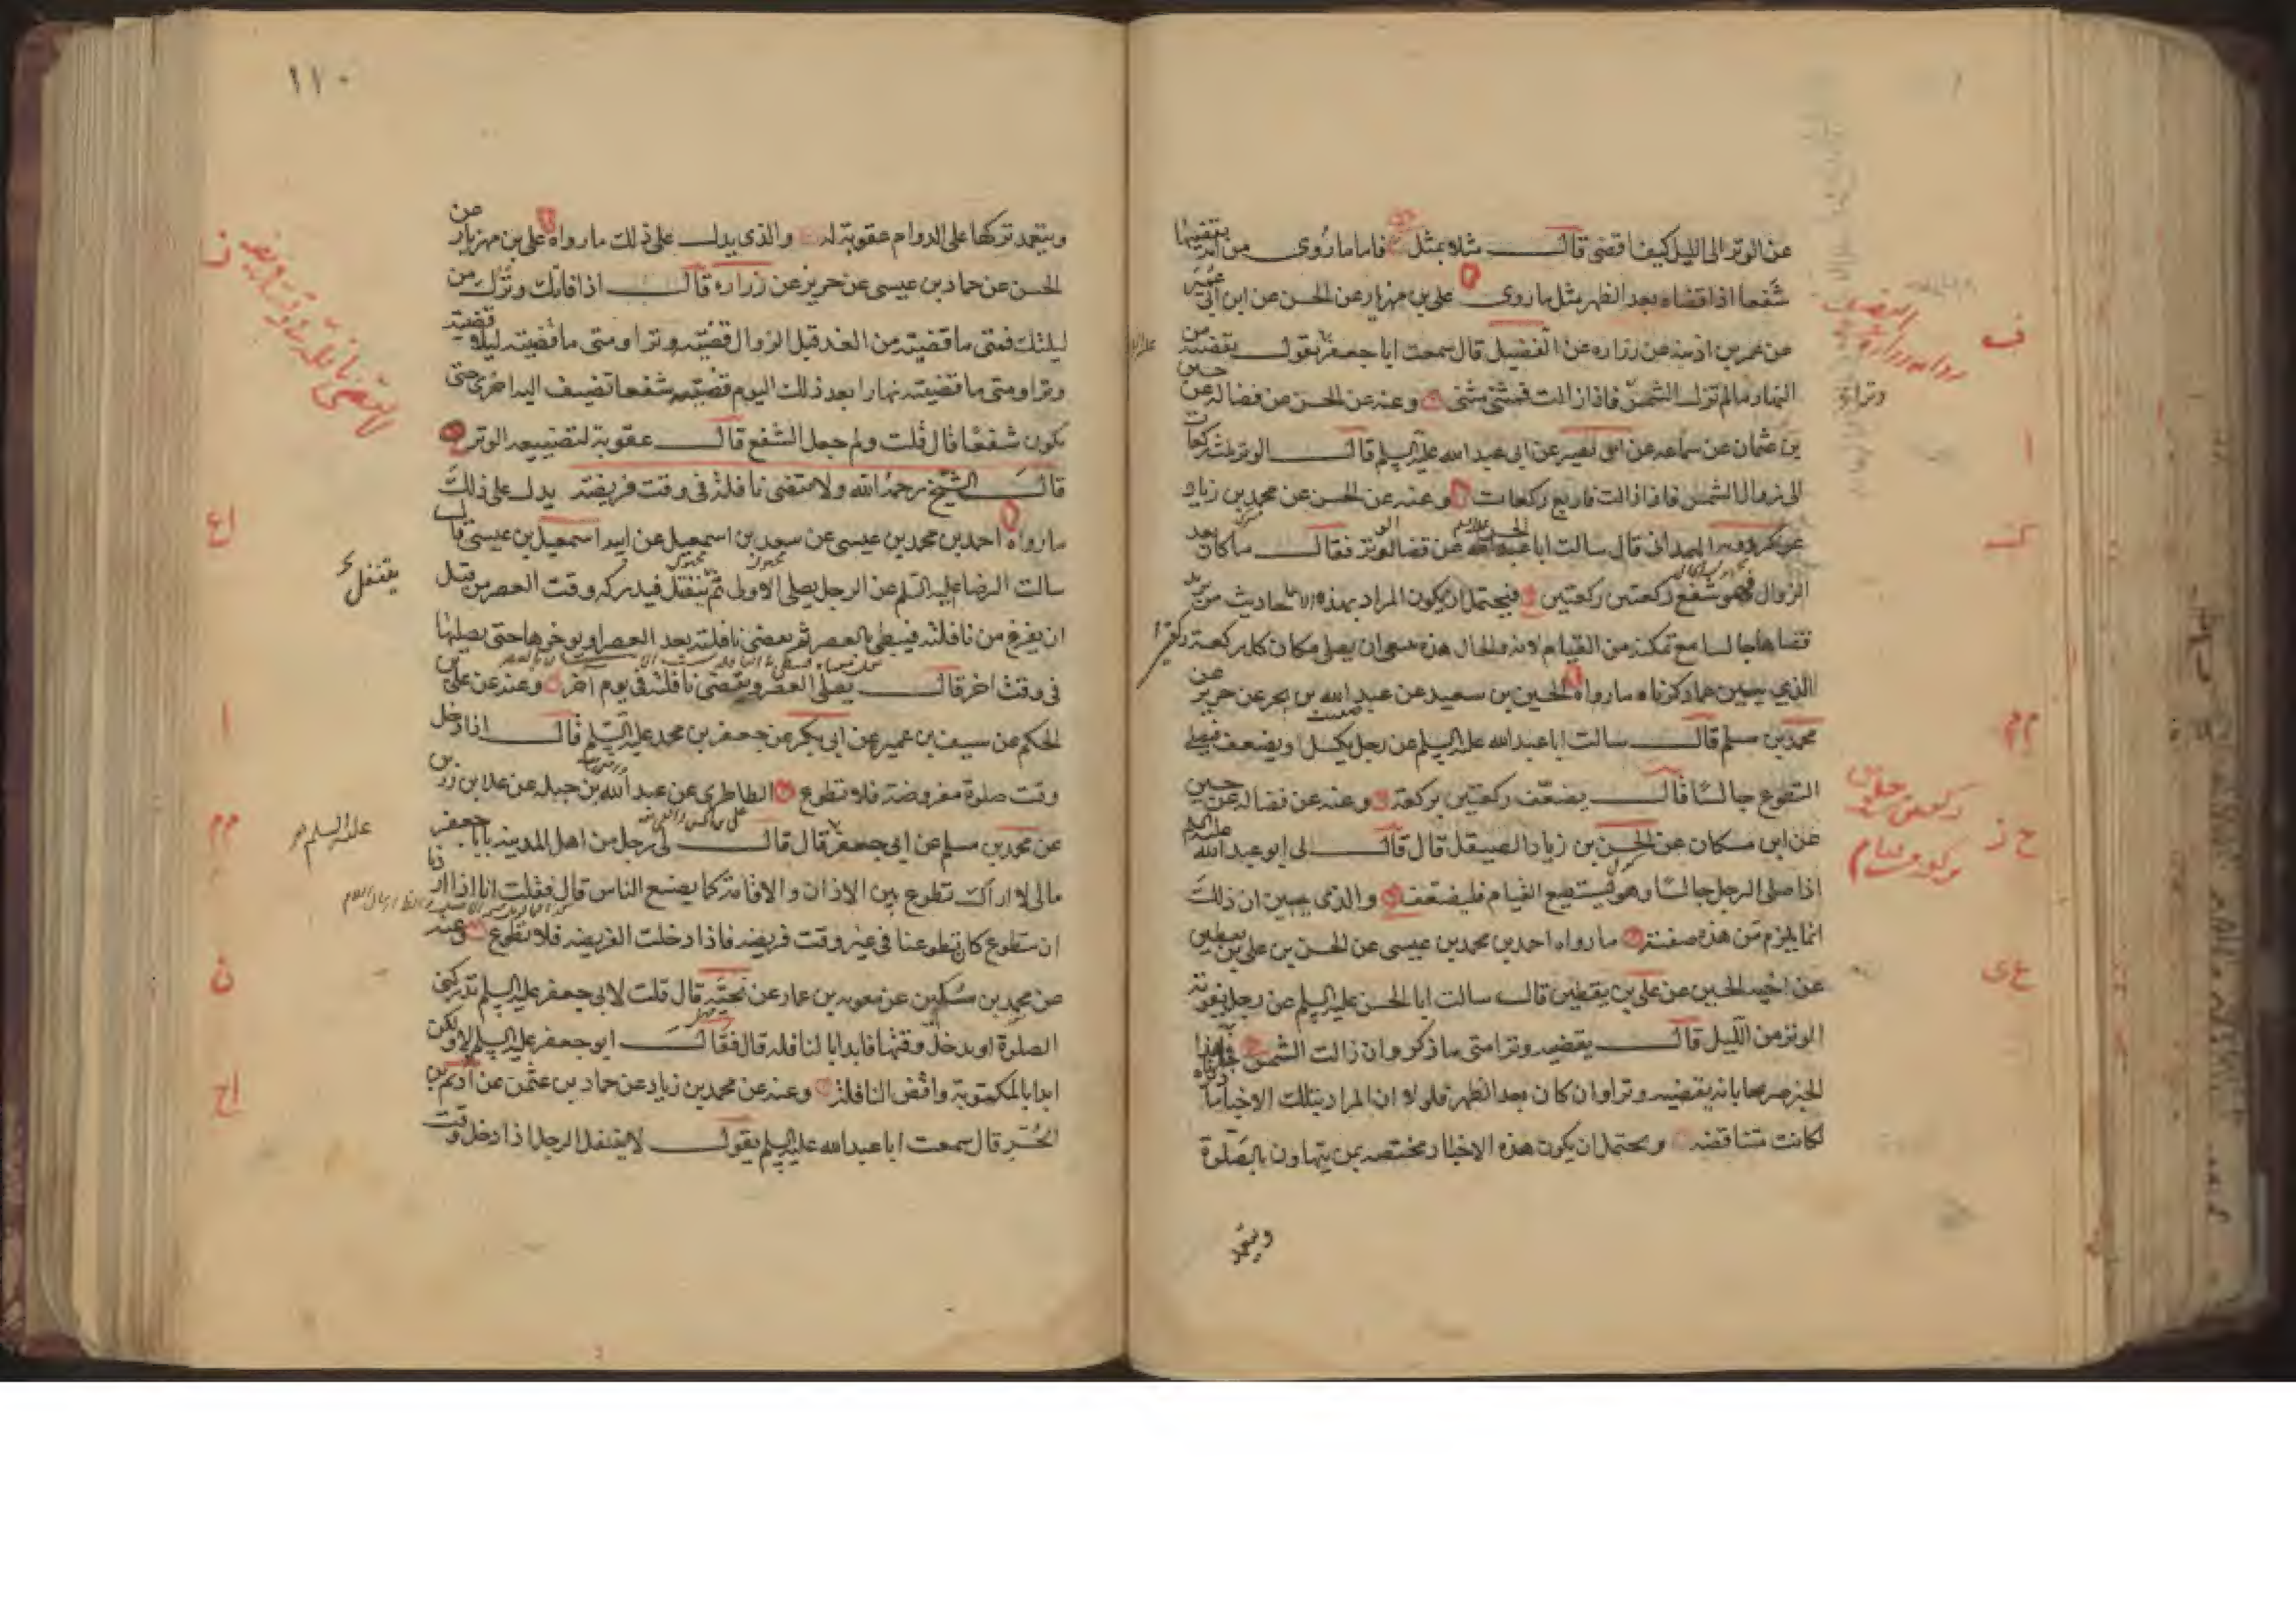 عن الوتر الى الليل كيف اقضى قال مثلا بمثل فاما ما روى من انه يقضيها
شفعا اذا قضاه بعد الظهر مثل ما روى على بن مهزيار عن الحسن عن ابن ابى عمير
عن عمر بن اذينه عن زراره عن الفضيل قال سمعت ابا جعفر يقول يقضيه من
النهار ما لم تزل الشمس فاذا زالت فمثنى مثنى وعنه عن الحسن عن فضاله عن حسين
بن عثمان عن سماعه عن ابى بصير عن ابى عبد الله عليه السلم قال الوتر ثلث ركعات
الى زوال الشمس فاذا زالت فاربع ركعات وعنه عن الحسن عن محمد بن زياد
عن كردويه الهمدانى قال سالت ابا عن قضا الوتر فقال ما كان بعد
الزوال فهو شفع ركعتين ركعتين فيحتمل ان يكون المراد بهذه الاحاديث من يريد
قضاها جالسا مع تمكنه من القيام لانه والحال هذه ان يصلى مكان كل ركعة ركعتين
الذي يبين عما ذكرناه ما رواه الحسين بن سعيد عن عبد الله بن بحر عن حريز عن
محمد بن مسلم قال سالت ابا عبد الله عليه السلم عن رجل يكسل او يضعف فيصلى
التطوع جالسا قال يضعف ركعتين بركعة وعنه عن فضاله عن حسين
عن ابن مسكان عن الحسن بن زياد الصيقل قال قال لى ابو عبد الله عليه السلم
اذا صلى الرجل جالسا وهو يستطيع القيام فليضعف والذى يبين ان ذلك
انما يلزم من هذه صفته ما رواه احمد بن محمد بن عيسى عن الحسن بن على بن يقطين
عن اخيه الحسين عن على بن يقطين قال سالت ابا الحسن عليه السلم عن رجل يفوته
الوتر من الليل قال يقضيه وترا متى ما ذكر وان زالت الشمس فجاء هذا
الخبر صريحا بانه يقضيه وترا وان كان بعد الظهر فلولا ان المراد بتلك الاخبار ما ذكرناه
لكانت متناقضه ويحتمل ان يكون هذه الاخبار مختصه بمن يتهاون بالصلوة
ويتعمد
١١٠
ويتعمد تركها على الدوام عقوبة له والذى يدل على ذلك ما رواه على بن مهزيار عن
الحسن عن حماد بن عيسى عن حريز عن زراره قال اذا فاتك وترك من
ليلتك فمتى ما قضيته من الغد قبل الزوال قضيته وترا ومتى ما قضيته ليلا قضيته
وترا ومتى ما قضيته نهارا بعد ذلك اليوم قضيته شفعا تضيف اليه اخرى حتى
يكون شفعا قال قلت ولم جعل الشفع قال عقوبة لتضييعه الوتر
قال الشيخ رحمه الله ولا تقضى نافلة فى وقت فريضة يدل على ذلك
ما رواه احمد بن محمد بن عيسى عن سعد بن اسمعيل عن ابيه اسمعيل بن عيسى قال
سالت الرضا عليه السلم عن الرجل يصلى الاولى ثم يتنفل فيدركه وقت العصر من قبل
ان يفرغ من نافلته فيبطى بالعصر ثم يقضى نافلته بعد العصر او يوخرها حتى يصليها
فى وقت اخر قال يصلى العصر ويقضى نافلته فى يوم اخر وعنه عن على بن
الحكم عن سيف بن عميره عن ابى بكر عن جعفر بن محمد عليه السلم قال اذا دخل
وقت صلوة مفروضة فلا تطوع الطاطرى عن عبد الله بن جبله عن علا بن رزين
عن محمد بن مسلم عن ابى جعفر قال قال لى رجل من اهل المدينه يا با جعفر
مالى لا اراك تطوع بين الاذان والاقامة كما يصنع الناس قال فقلت انا اذا اردنا
ان نتطوع كان تطوعنا فى غير وقت فريضه فاذا دخلت الفريضه فلا تطوع وعنه
عن محمد بن مسكين عن معويه بن عمار عن نجيه قال قلت لابى جعفر عليه السلم تدركنى
الصلوة او يدخل وقتها فابدا بالنافله قال فقال ابو جعفر عليه السلم لا ولكن
ابدا بالمكتوبة واقض النافلة وعنه عن محمد بن زياد عن حماد بن عثمن عن اديم بن
الحر قال سمعت ابا عبد الله عليه السلم يقول لا يتنفل الرجل اذا دخل وقت
يتنفل
عليه السلم